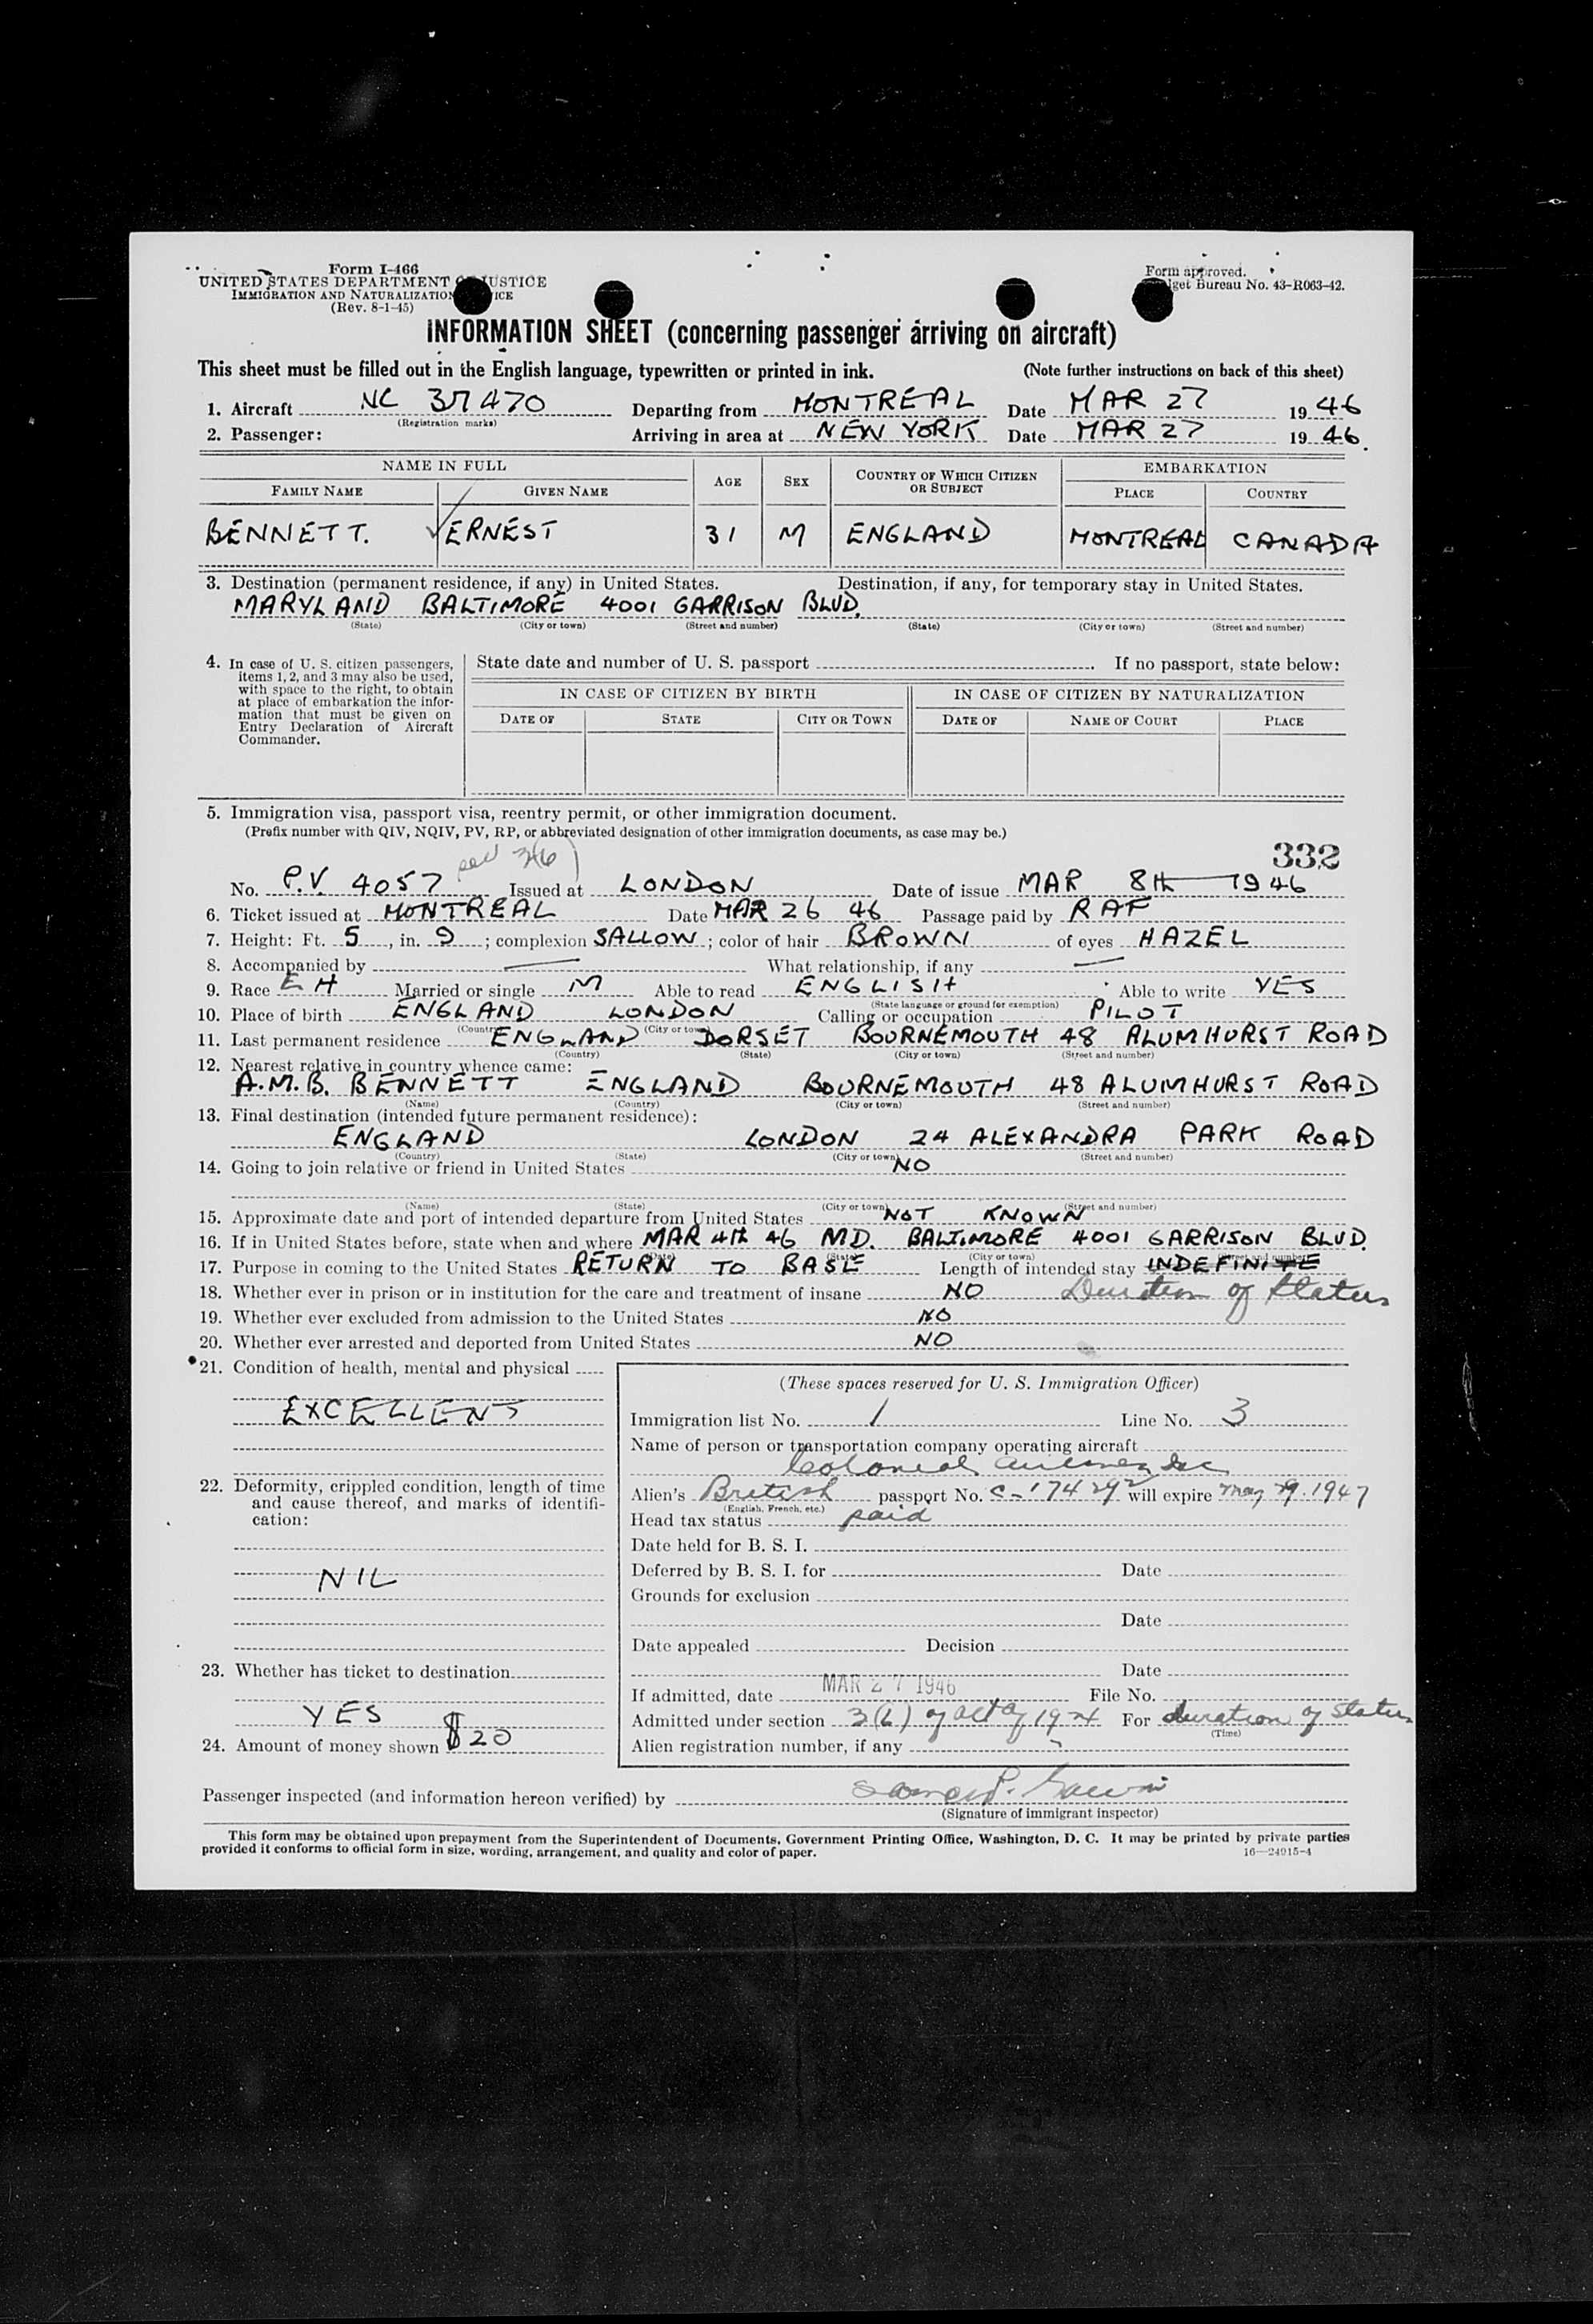 Form I-466
UNITED STATES DEPARTMENT OF JUSTICE
IMMIGRATION AND NATURALIZATION ICE
(Rev. 8-1-45)
Form approved.
get Bureau No. 43-R063-42.
INFORMATION SHEET (concerning passenger arriving on aircraft)
This sheet must be filled out in the English language, typewritten or printed in ink. (Note further instructions on back of this sheet)
1. Aircraft NC 37470 Departing from MONTREAL Date MAR 27 1946
(Registration marks)
2. Passenger: Arriving in area at NEW YORK Date MAR 27 1946.
NAME IN FULL AGE SEX COUNTRY OF WHICH CITIZEN OR SUBJECT EMBARKATION
FAMILY NAME GIVEN NAME PLACE COUNTRY
BENNETT. ERNEST 31 M ENGLAND MONTREAL CANADA
3. Destination (permanent residence, if any) in United States. Destination, if any, for temporary stay in United States.
MARYLAND BALTIMORE 4001 GARRISON BLVD.
(State) (City or town) (Street and number) (State) (City or town) (Street and number)
4. In case of U. S. citizen passengers, items 1, 2, and 3 may also be used, with space to the right, to obtain at place of embarkation the information that must be given on Entry Declaration of Aircraft Commander.
State date and number of U. S. passport . If no passport, state below:
IN CASE OF CITIZEN BY BIRTH IN CASE OF CITIZEN BY NATURALIZATION
DATE OF STATE CITY OR TOWN DATE OF NAME OF COURT PLACE
5. Immigration visa, passport visa, reentry permit, or other immigration document.
(Prefix number with QIV, NQIV, PV, RP, or abbreviated designation of other immigration documents, as case may be.)
332
No. P.V. 4057 Issued at LONDON Date of issue MAR 8TH 1946
6. Ticket issued at MONTREAL Date MAR 26 46 Passage paid by RAF
7. Height: Ft. 5, in. 9; complexion SALLOW; color of hair BROWN of eyes HAZEL
8. Accompanied by — What relationship, if any —
9. Race EH Married or single M Able to read ENGLISH Able to write YES
(State language or ground for exemption)
10. Place of birth ENGLAND LONDON Calling or occupation PILOT
(Country) (City or town)
11. Last permanent residence ENGLAND DORSET BOURNEMOUTH 48 ALUMHURST ROAD
(Country) (State) (City or town) (Street and number)
12. Nearest relative in country whence came:
A.M.B. BENNETT ENGLAND BOURNEMOUTH 48 ALUMHURST ROAD
(Name) (Country) (City or town) (Street and number)
13. Final destination (intended future permanent residence):
ENGLAND LONDON 24 ALEXANDRA PARK ROAD
(Country) (State) (City or town) (Street and number)
14. Going to join relative or friend in United States NO
(Name) (State) (City or town) (Street and number)
15. Approximate date and port of intended departure from United States NOT KNOWN
16. If in United States before, state when and where MAR 4TH 46 MD. BALTIMORE 4001 GARRISON BLVD.
(Date) (State) (City or town) (Street and number)
17. Purpose in coming to the United States RETURN TO BASE Length of intended stay INDEFINITE
18. Whether ever in prison or in institution for the care and treatment of insane NO Duration of Status
19. Whether ever excluded from admission to the United States NO
20. Whether ever arrested and deported from United States NO
21. Condition of health, mental and physical
EXCELLENT
22. Deformity, crippled condition, length of time and cause thereof, and marks of identification:
NIL
23. Whether has ticket to destination
YES
24. Amount of money shown $20
(These spaces reserved for U. S. Immigration Officer)
Immigration list No. 1 Line No. 3
Name of person or transportation company operating aircraft
Colonial Airlines Inc
Alien's British passport No. C-174292 will expire May 29. 1947
(English, French, etc.)
Head tax status paid
Date held for B. S. I.
Deferred by B. S. I. for Date
Grounds for exclusion
Date
Date appealed Decision
Date
If admitted, date MAR 27 1946 File No.
Admitted under section 3(6) of act of 1924 For duration of Status
(Time)
Alien registration number, if any
Passenger inspected (and information hereon verified) by
(Signature of immigrant inspector)
This form may be obtained upon prepayment from the Superintendent of Documents, Government Printing Office, Washington, D. C. It may be printed by private parties
provided it conforms to official form in size, wording, arrangement, and quality and color of paper. 16—24915-4